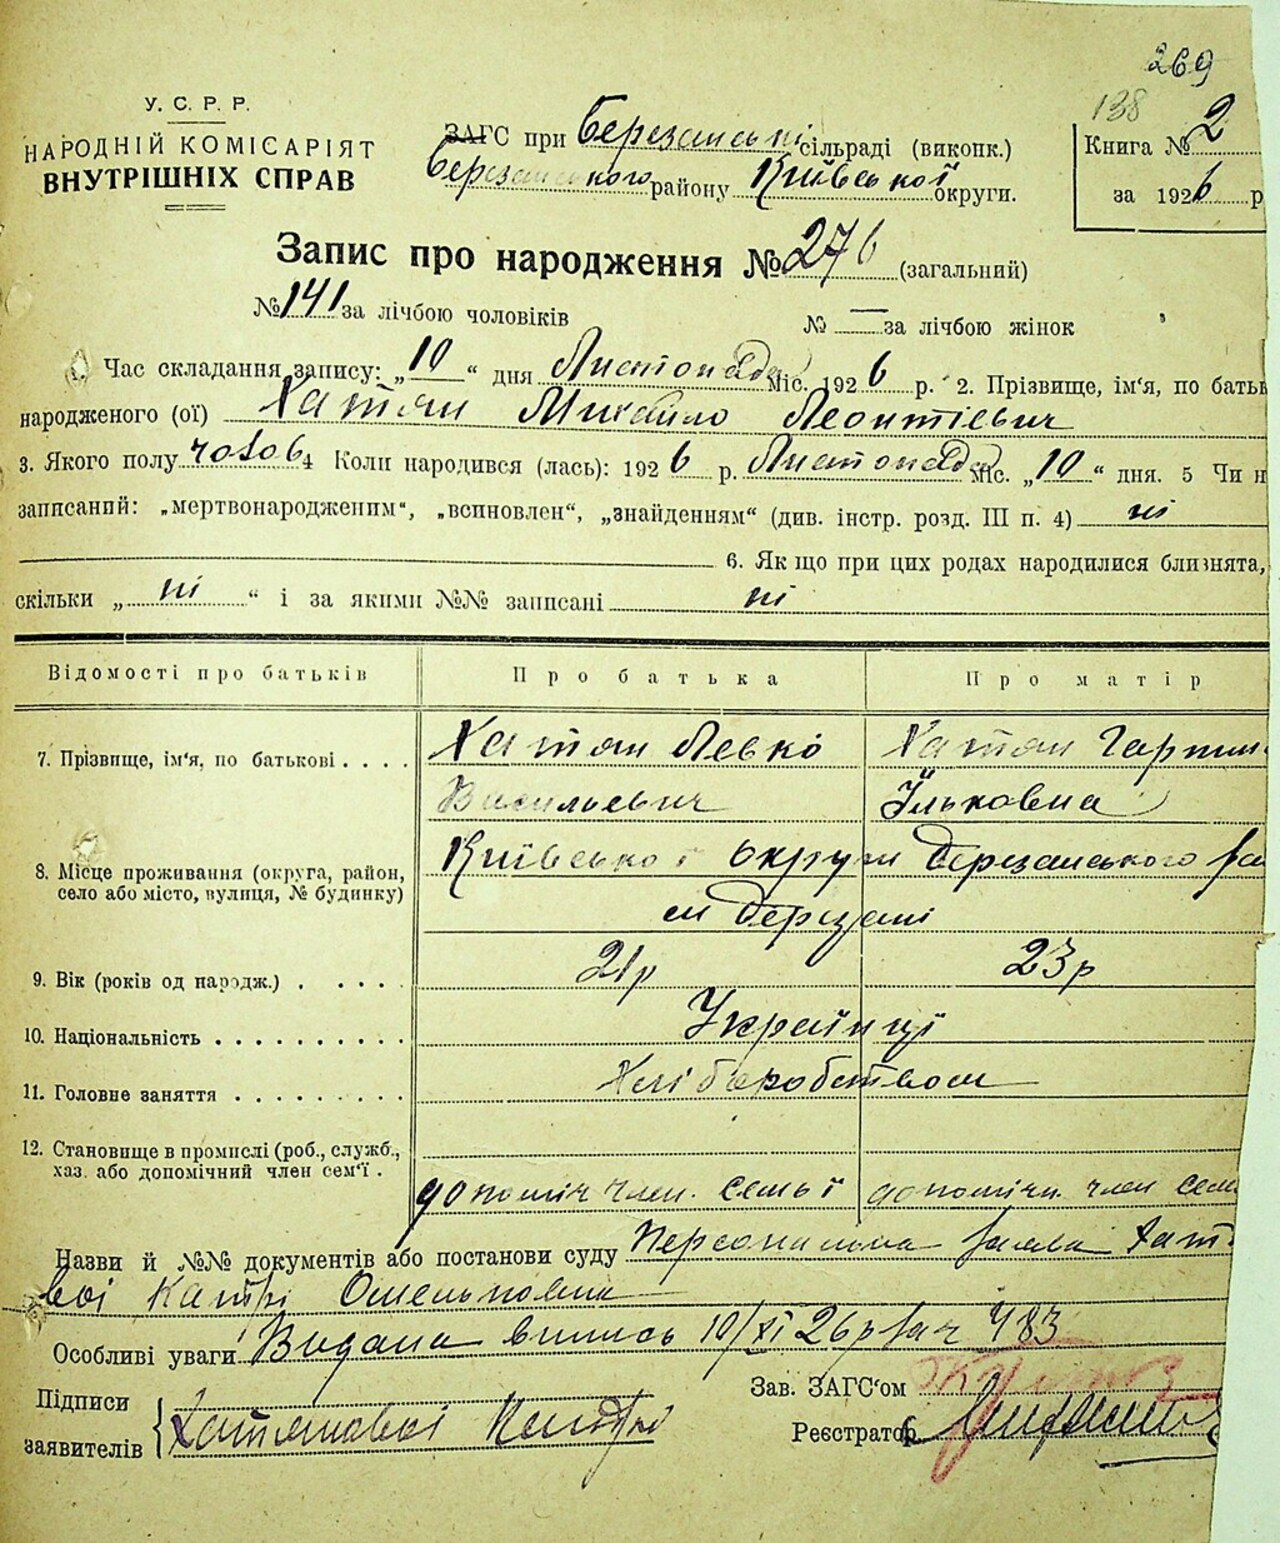 269
138
У. С. Р. Р.
НАРОДНІЙ КОМІСАРІЯТ
ВНУТРІШНІХ СПРАВ
ЗАГС при Березанські сільраді (виконк.)
Березанського району Київської округи.
Книга № 2
за 1926 р
Запис про народження № 276 (загальний)
№ 141 за лічбою чоловіків № — за лічбою жінок
1. Час складання запису: „10“ дня Листопада міс. 1926 р. 2. Прізвище, ім'я, по батьк
народженого (ої) Хатян Михайло Леонтієвич
3. Якого полу чолов 4 Коли народився (лась): 1926 р. Листопада міс. „10“ дня. 5 Чи н
записаний: „мертвонародженим“, „всиновлен“, „знайденням“ (див. інстр. розд. III п. 4) ні
6. Як що при цих родах народилися близнята,
скільки „ні“ і за якими №№ записані ні
Відомості про батьків Про батька Про матір
7. Прізвище, ім'я, по батькові . . . . Хатян Левко Хатян Гарпин
Васильевич Їльковна
8. Місце проживання (округа, район,
село або місто, вулиця, № будинку)
Київської округи Березанського ра
м Березані
9. Вік (років од народж.) . . . . . 21р 23р
10. Національність . . . . . . . . . . Українці
11. Головне заняття . . . . . . . . . Хліборобством
12. Становище в промислі (роб., служб.,
хаз. або допомічний член сем'ї .
допоміч член. семьї допомічн. член сем
Назви й №№ документів або постанови суду Персональна заява Хат
вої Катрі Омельковна
Особливі уваги Видана випись 10/XI 26р за № 483
Підписи
заявителів
Зав. ЗАГС'ом
Реєстратор